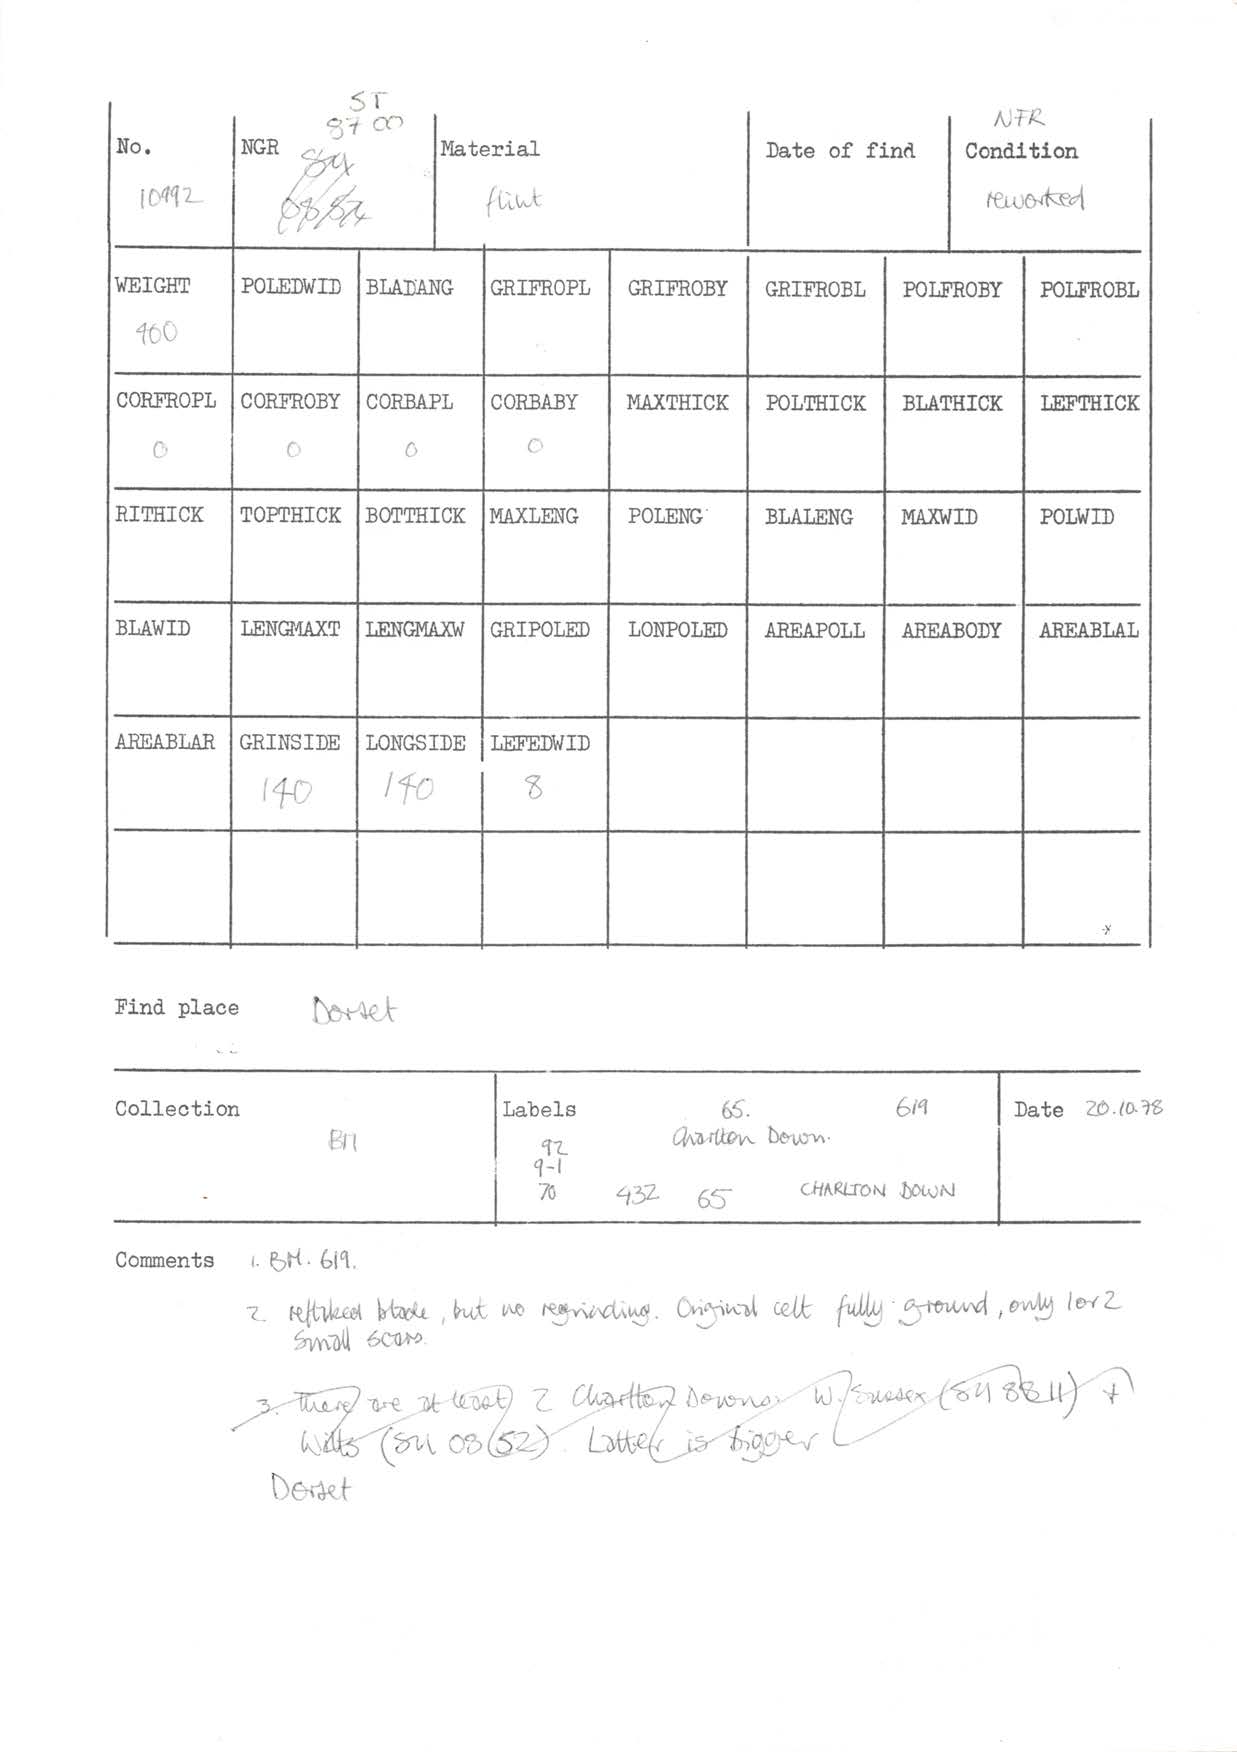 ST
87 00
NFR
No. NGR Material Date of find Condition
SU
10992 08/52 flint reworked
WEIGHT POLEDWID BLADANG GRIFROPL GRIFROBY GRIFROBL POLFROBY POLFROBL
460
CORFROPL CORFROBY CORBAPL CORBABY MAXTHICK POLTHICK BLATHICK LEFTHICK
0 0 0 0
RITHICK TOPTHICK BOTTHICK MAXLENG POLENG BLALENG MAXWID POLWID
BLAWID LENGMAXT LENGMAXW GRIPOLED LONPOLED AREAPOLL AREABODY AREABLAL
AREABLAR GRINSIDE LONGSIDE LEFEDWID
140 140 8
Find place Dorset
Collection Labels 65. 619 Date 20.10.78
BM Charlton Down.
92
9-1
70 432 65 CHARLTON DOWN
Comments 1. BM. 619.
2 reflaked blade, but no regrinding. Original celt fully ground, only 1 or 2
small scars.
3. There are at least 2 Charlton Downs: W. Sussex (SU 88 11) +
Wilts (SU 08 52). Latter is bigger
Dorset